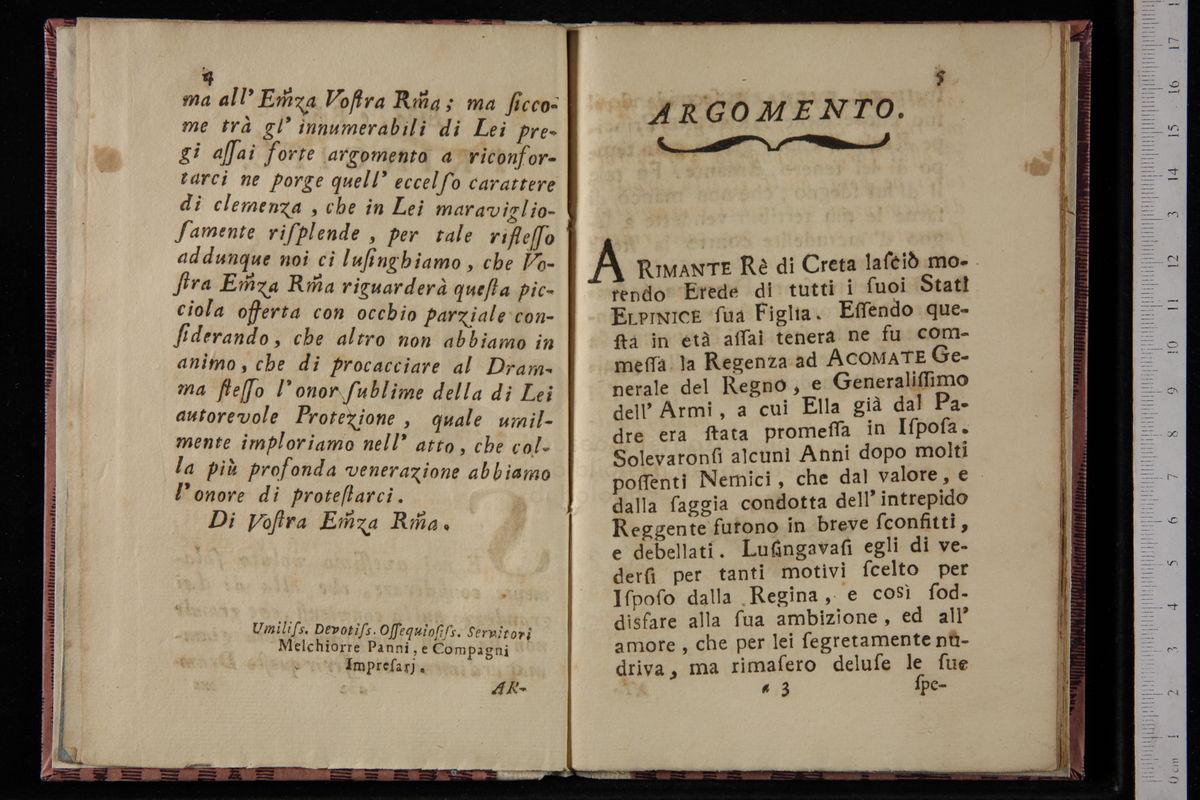 4
ma all' Em̃za Voſtra Rm̃a; ma ſicco-
me trà gl' innumerabili di Lei pre-
gi aſſai forte argomento a riconfor-
tarci ne porge quell' eccelſo carattere
di clemenza, che in Lei maraviglio-
ſamente riſplende, per tale rifleſſo
addunque noi ci luſinghiamo, che Vo-
ſtra Em̃za Rm̃a riguarderà queſta pic-
ciola offerta con occhio parziale con-
ſiderando, che altro non abbiamo in
animo, che di procacciare al Dram-
ma ſteſſo l' onor ſublime della di Lei
autorevole Protezione, quale umil-
mente imploriamo nell' atto, che col-
la più profonda venerazione abbiamo
l' onore di proteſtarci.
Di Voſtra Em̃za Rm̃a.
Umiliſs. Devotiſs. Oſſequioſiſs. Servitori
Melchiorre Panni, e Compagni
Impreſarj.
AR-
5
ARGOMENTO.
ARIMANTE Rè di Creta laſciò mo-
rendo Erede di tutti i ſuoi Stati
ELPINICE ſua Figlia. Eſſendo que-
ſta in età aſſai tenera ne fu com-
meſſa la Regenza ad ACOMATE Ge-
nerale del Regno, e Generaliſſimo
dell' Armi, a cui Ella già dal Pa-
dre era ſtata promeſſa in Iſpoſa.
Solevaronſi alcuni Anni dopo molti
poſſenti Nemici, che dal valore, e
dalla ſaggia condotta dell' intrepido
Reggente furono in breve ſconfitti,
e debellati. Luſingavaſi egli di ve-
derſi per tanti motivi ſcelto per
Iſpoſo dalla Regina, e così ſod-
disfare alla ſua ambizione, ed all'
amore, che per lei ſegretamente nu-
driva, ma rimaſero deluſe le ſue
* 3
ſpe-
0 cm 1 2 3 4 5 6 7 8 9 10 11 12 13 14 15 16 17